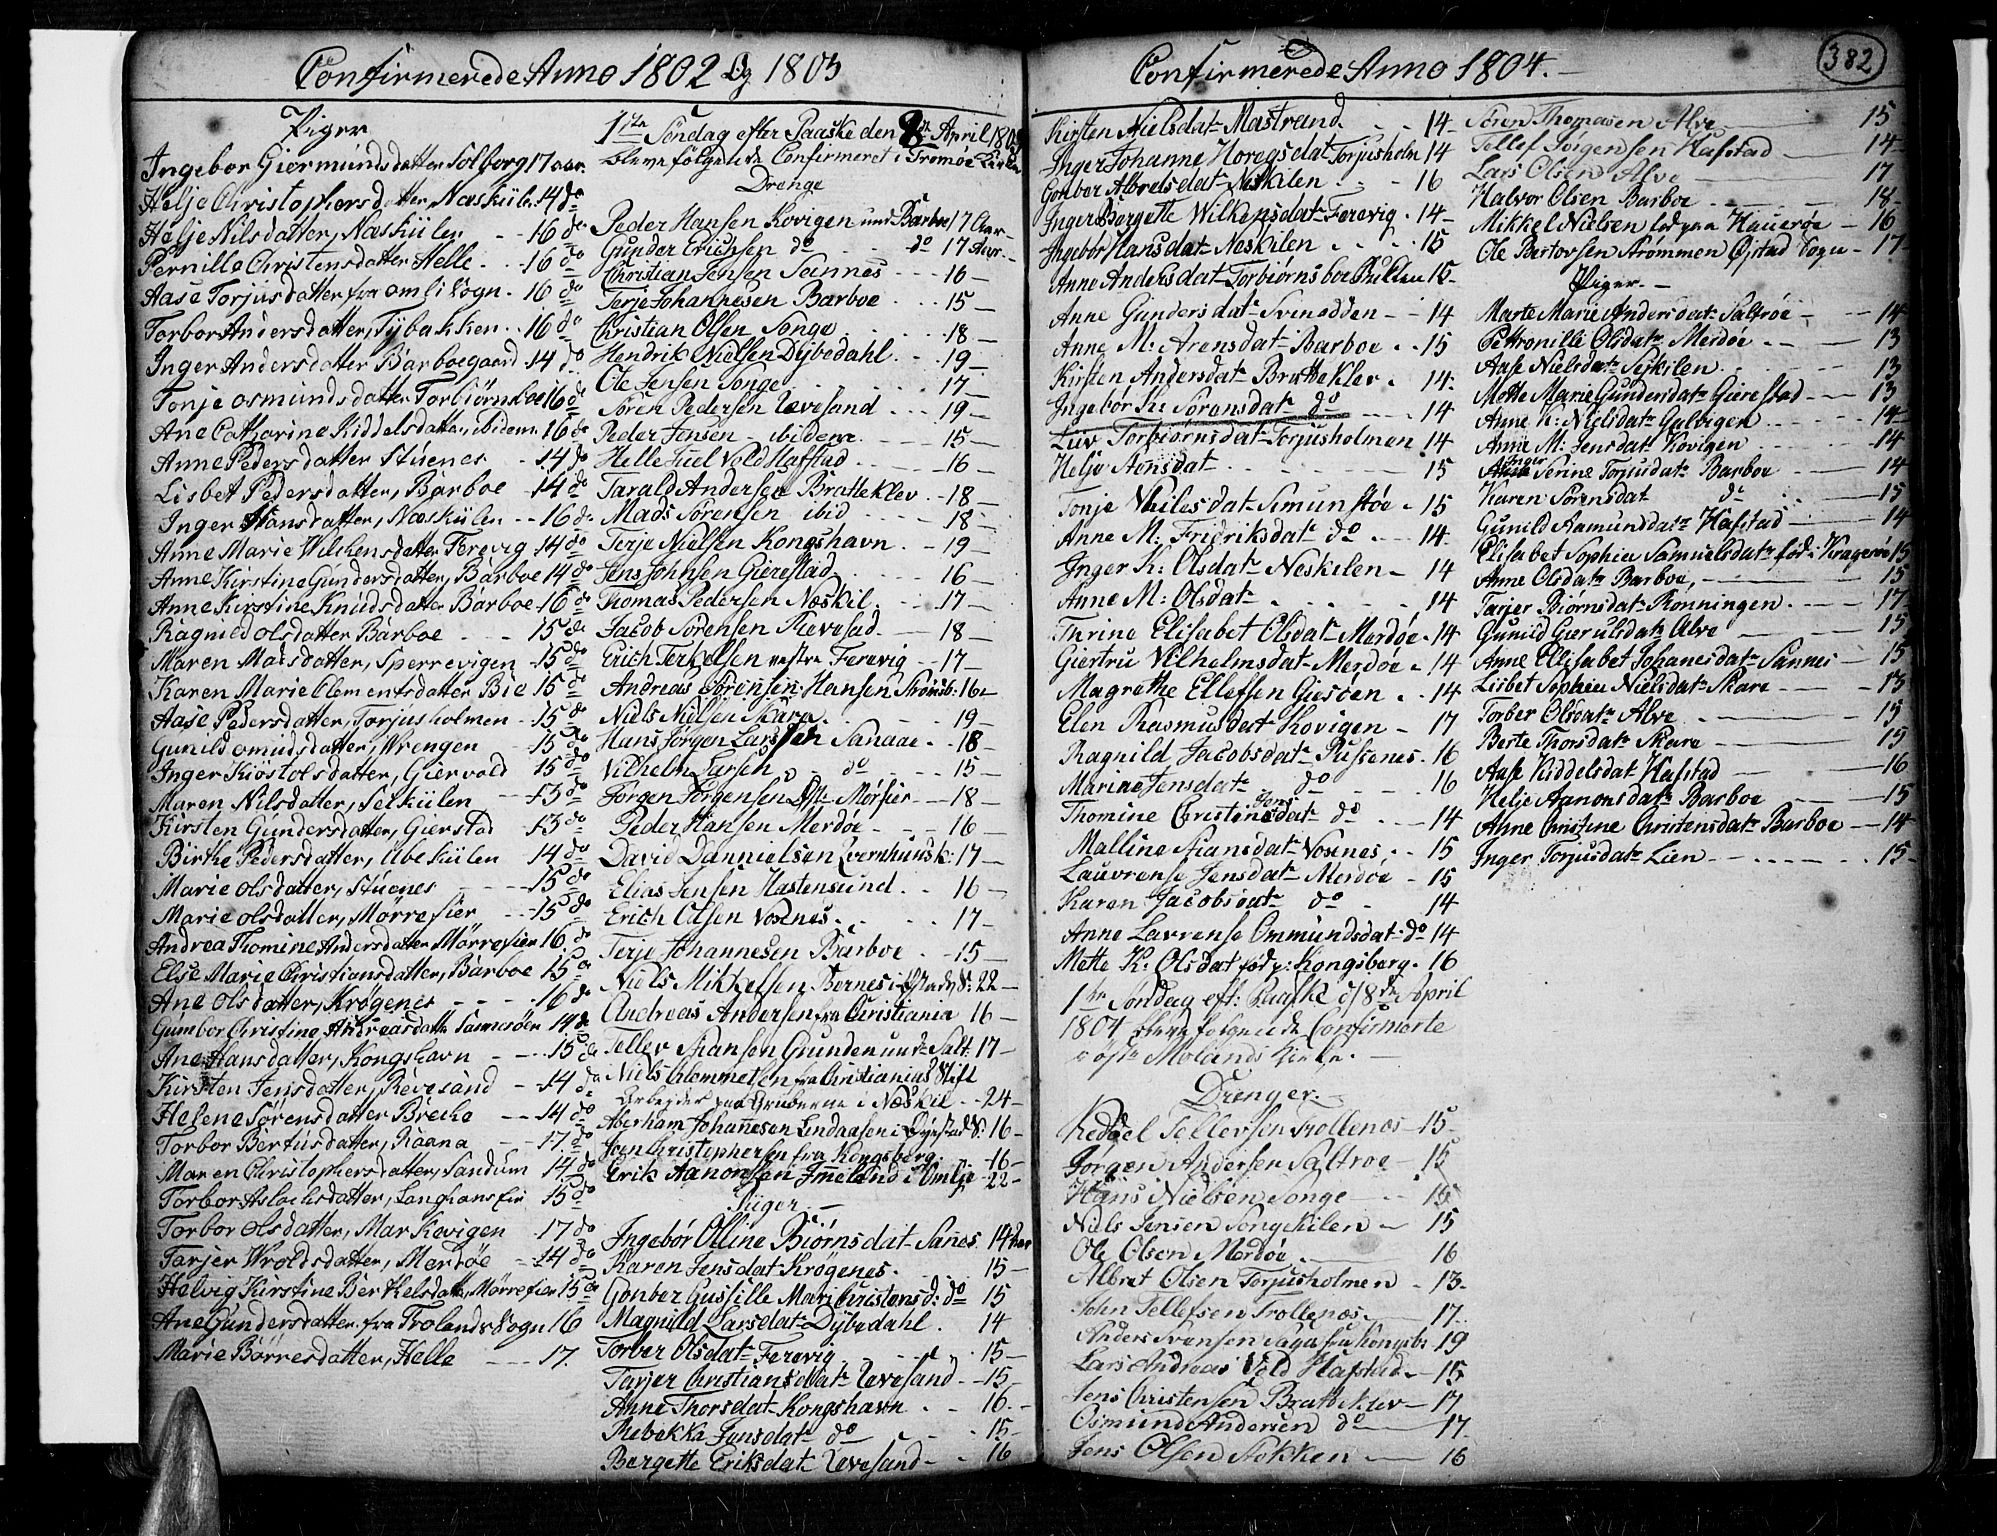 Confirmerede Anno 1802 Og 1803
Piger
Ingebor Giermundsdatter Solborg 17 aar.
Helje Christophersdatter, Næskiilen 14 do
Helje Nilsdatter, Næskiilen - - 16 do
Pernille Christensdatter Helle - 16 do
Aase Torjusdatter fra Omli Sogn - 16 do
Torbor Andersdatter, Tÿbakken - 16 do
Inger Andersdatter Barboegaard 14 do
Tonje Osmundsdatter Torbiörnsboe 16 do
Ane Catharine Kiddelsdatter, ibidem 16 do
Anne Pedersdatter Stüenes - 14 do
Lisbet Pedersdatter, Barboe - 14 do
Inger Hansdatter, Næskiilen - - 16 do
Anne Marie Wilkensdatter Ferevig 14 do
Anne Kirstine Gündersdatter, Barboe 14 do
Anne Kirstine Knüdsdatter Barboe 16 do
Ragnild Olsdatter Barboe - - - 15 do
Maren Madsdatter, Sperrevigen - 15 do
Karen Marie Clementsdatter Bie 15 do
Aase Pedersdatter, Torjusholmen - 15 do
Gunild Omundsdatter, Wrengen - 15 do
Inger Kiöstolsdatter, Giervold 15 do
Maren Nilsdatter, Seikiilen - - 13 do
Kirsten Gündersdatter, Gierstad - 13 do
Birthe Pedersdatter, Ubekiilen 14 do
Marie Olsdatter, Stüenes - - - 15 do
Marie Olsdatter, Mörrefier - - 15 do
Andrea Thomine Andersdatter Mörrefier 16 do
Else Marie Christiansdatter, Barboe 15 do
Ane Olsdatter, Krögenes - - - - 16 do
Gumbor Christine Andreasdatter 14 do
Ane Hansdatter, Kongshavn - - - 15 do
Kirsten Jensdatter, Revesand - 14 do
Helene Sørensdatter Brekke - - 14 do
Torbor Bertusdatter, Raana - - 17 do
Maren Christophersdatter, Sandum 14 do
Torbor Aslachsdatter, Langhansfier 15 do
Torbor Olsdatter, Markevigen - 17 do
Tarjer Wroldsdatter, Merdöe - 14 do
Helvig Kirstine Berthelsdatter, Mörrefier 15 do
Ane Gundersdatter fra Trolands Sogn 16
Marie Börresdatter, Helle - - - 17.
1ste Söndag efter Paaske den 8de April 1803
bleve fölgende Confirmeret i Tromöe Kirke
Drenge
Peder Hansen Kovigen und Barboe 17 Aar
Gunder Erichsen do - do 17 Aar
Christian Jensen Sannes - - - 16 -
Terje Johannesen Barboe - - - 15 -
Christian Olsen Songe - - - 18 -
Hendrik Nielsen Dÿbedahl - - 19 -
Ole Jensen Songe - - - - 17 -
Sören Pedersen Revesand - - - 19 -
Peder Jensen ibidem - - - 15 -
Helle Juel Vold Hafstad - - - 16 -
Tarald Andersen Bratteklev - - 18 -
Mads Sörensen ibid - - - 18 -
Terje Nielsen Kongshavn - - 19 -
Jens Johnsen Gierestad - - - 16 -
Thomas Pedersen Næskil - - - 17 -
Jacob Sörensen Revesad - - - 18 -
Erich Terkelsen vestre Ferevig - 17 -
Andreas Sörensen Hansen Strömsb: 16 -
Niels Nielsen Skare - - - 19 -
Hans Jörgen Larssen Sanaae - 18 -
Vilhelm Larsen - do - - 15 -
Jörgen Jörgensen Öst Mörfier - 18 -
Peder Hansen Merdöe - - - 16 -
David Dannielsen 17 -
Elias Jensen Hastensund - - 16 -
Erich Olsen Voxnes - - - 17 -
Terje Johannesen Barboe - - 15 -
Niels Mikkelsen Bernes i Öÿestads S: 22 -
Andreas Andersen fra Christiania 16 -
Tellev Hansen Grunden und Salt: 17 -
Niels Clemmetsen fra Christianias Stift
Arbejder ved Gruberne i Næskil - - 24 -
Aberham Johannesen Lindaasen i Öÿestad S: 16 -
Jon Christophersen fra Kongsberg - 16 -
Erik Aanonsen Immeland i Omlje - 22 -
Piger. -
Ingebör Olline Biörnsdat Sanes 14 Aar
Karen Jensdat Krögenes - 15 -
Gonber Gussille Mari Christens d: do 15
Magnild Larsdat Dÿbedahl - 14
Torber Olsdatr Ferevig - - - 15 -
Tarjer Christiansdatr Revesand - 15 -
Anne Thorsdat Kongshavn - - 16. -
Rebekka Jensdatr do - - 15 -
Bergette Eriksdat Revesand - - 16
Confirmerede Anno 1804. -
382
Kirsten Nielsdatr Mastrand - - 14 -
Inger Johanne Horegsdat Torjusholm 14
Gonber Albretsdat Neskilen - - - 16
Inger Bergette Wilkensdat Ferevig - 14 -
Ingebor Hansdat Neskilen - - - 15
Anne Andersdat Torbiørnsboe Bulleen 15 -
Anne Gundersdat Svinodden - - 14
Anne M: Arensdat Barboe - - 15
Kirsten Andersdat Bratteklev - 14 -
Ingebor Sörensdatr do - - - 14
Liiv Torbiørnsdat Torjusholmen 14
Helje Aonsdat - - - - - 15
Tonje Nielsdat Simunstöe - 15
Anne M: Fridriksdat do - - 14
Inger K: Olsdat Neskilen - 14
Anne M: Olsdat - - - - - 14
Turine Elisabet Olsdat Merdøe - 14
Giertru Vilhelmsdat Merdøe - 14
Magrethe Ellefsen Giesöen - - 14
Elen Rasmusdat Kovigen - - 17
Ragnild Jacobsdat Pussenes - 16
Marine Jensdat do - - - 16
Thomine Christine Jensdat do - - 14
Malline Hansdat Voxenes - - 15
Lauvrense Jensdat Merdöe - 15
Karen Jacobsdat do - 14
Anne Lavrense Ommundsdat do 14
Mette K: Olsdat föd p: Kongsberg - 16
1ste Söndag eft: Paaske d: 8de April
1804 bleve fölgende Confirmerte
i öste Molands Kirke. -
Drenger. -
Keddel Tellevsen Trollenæs - 15 -
Jörgen Andersen Saltröe - 15
Hans Nielsen Songe - - 15
Niels Jensen Songekilen - 15
Ole Olsen Merdöe - - - 16
Albret Olsen Torjusholmen - 13 -
John Tellefsen Trollenæs - 17 -
Anders Svensen Saga fra Kongsb: 19
Lars Andreas Vold Hafstad - 15
Jens Christensen Bratteklev - 17
Osmund Andersen do - - 17
Jens Olsen Stokken - - 16
Sören Thomasen Alve - - - 15
Tellef Jörgensen Hafstad - - 14
Lars Olsen Alve - - - 17
Halvor Olsen Barboe - - - - 18 -
Mikkel Nielsen föd paa Hauerøe - 16
Ole Bertovsen Strømmen Öjstad Sogn - 17 -
Piger. -
Marte Marie Andersdat Saltröe - - 14
Petronille Olsdatr Merdöe - - - 13
Aase Nielsdatr Sejkilen - - - 13
Mette Marie Gundersdatr Gierestad - - 13
Anne K: Nielsdatr Galvigen - - 14 -
Anne M: Jensdatr Kovigen - - - 14
Inger Serine Torjusdatr Barboe - 14
Karen Sörensdat do - - - 15
Gunild Aamundsdatr Hafstad - - 14
Elisabet Sophia Samuelsdatr föd i Kragerøe 15
Anne Olsdatr Barboe, - - - 15
Tarjer Biørnsdatr Rønningen - - - 17
Gunild Gierulsdatr Alve - - - 15
Anne Elisabet Johanesdatr Sannes - 15
Lisbet Sophia Nielsdatr Skare - - - 15
Torber Olsdatr Alve - - - 15
Berte Thorsdatr Skare - - - 15
Aase Kiddelsdat Hafstad - - - 16
Helje Aanonsdatr Barboe - - - 15
Anne Christine Christensdatr Barboe - 14
Inger Torjusdatr Lien - - - - 15 -